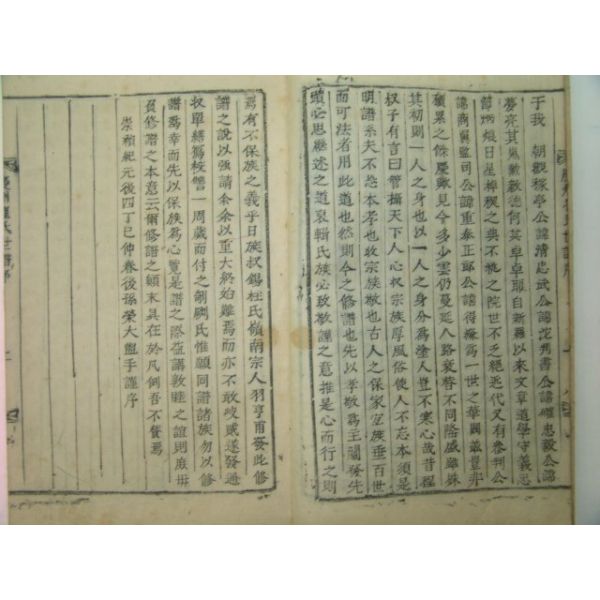 于我 朝觀稼亭公諱淸忠武公諱 判書公諱確忠毅公諱
夢亮其風歟徽德何其卓卓耶自新羅以來文章道學守義忠
節炳烺日星 之典不 之院世不乏絶近代又有參判公
諱商翼監司公諱重泰正郞公諱得 爲一世之華閥玆豈非
積累之餘慶歟見今多少雲仍蔓延八路衰替不同隆戚雖殊
其初則一人之身也以一人之身分爲塗人豈不寒心哉昔程
叔子有言曰管攝天下人心收宗族厚風俗使人不忘本須是
明譜系夫不忘本孝也收宗族敬也古人之保家宜族垂百世
而可法者用此道也然則今之修譜也先以孝敬爲主 發先
頭必思繼述之道裒輯氏族必致敬謹之意推是心而行之則
焉有不保族之義乎日族叔錫杜氏嶺南宗人羽亨甫發此修
譜之說以强請余余以重大終始難焉而亦不敢 遂發通
收單 校讐一周歲而付之剞劂氏惟願同譜諸族勿以修
譜爲幸而先以保族爲心覽是譜之際益講敦睦之誼則庶毋
負修譜之本意云爾修譜之顚末具在於凡例吾不贅焉
崇禎紀元後四丁巳仲春後孫榮大盥手謹序